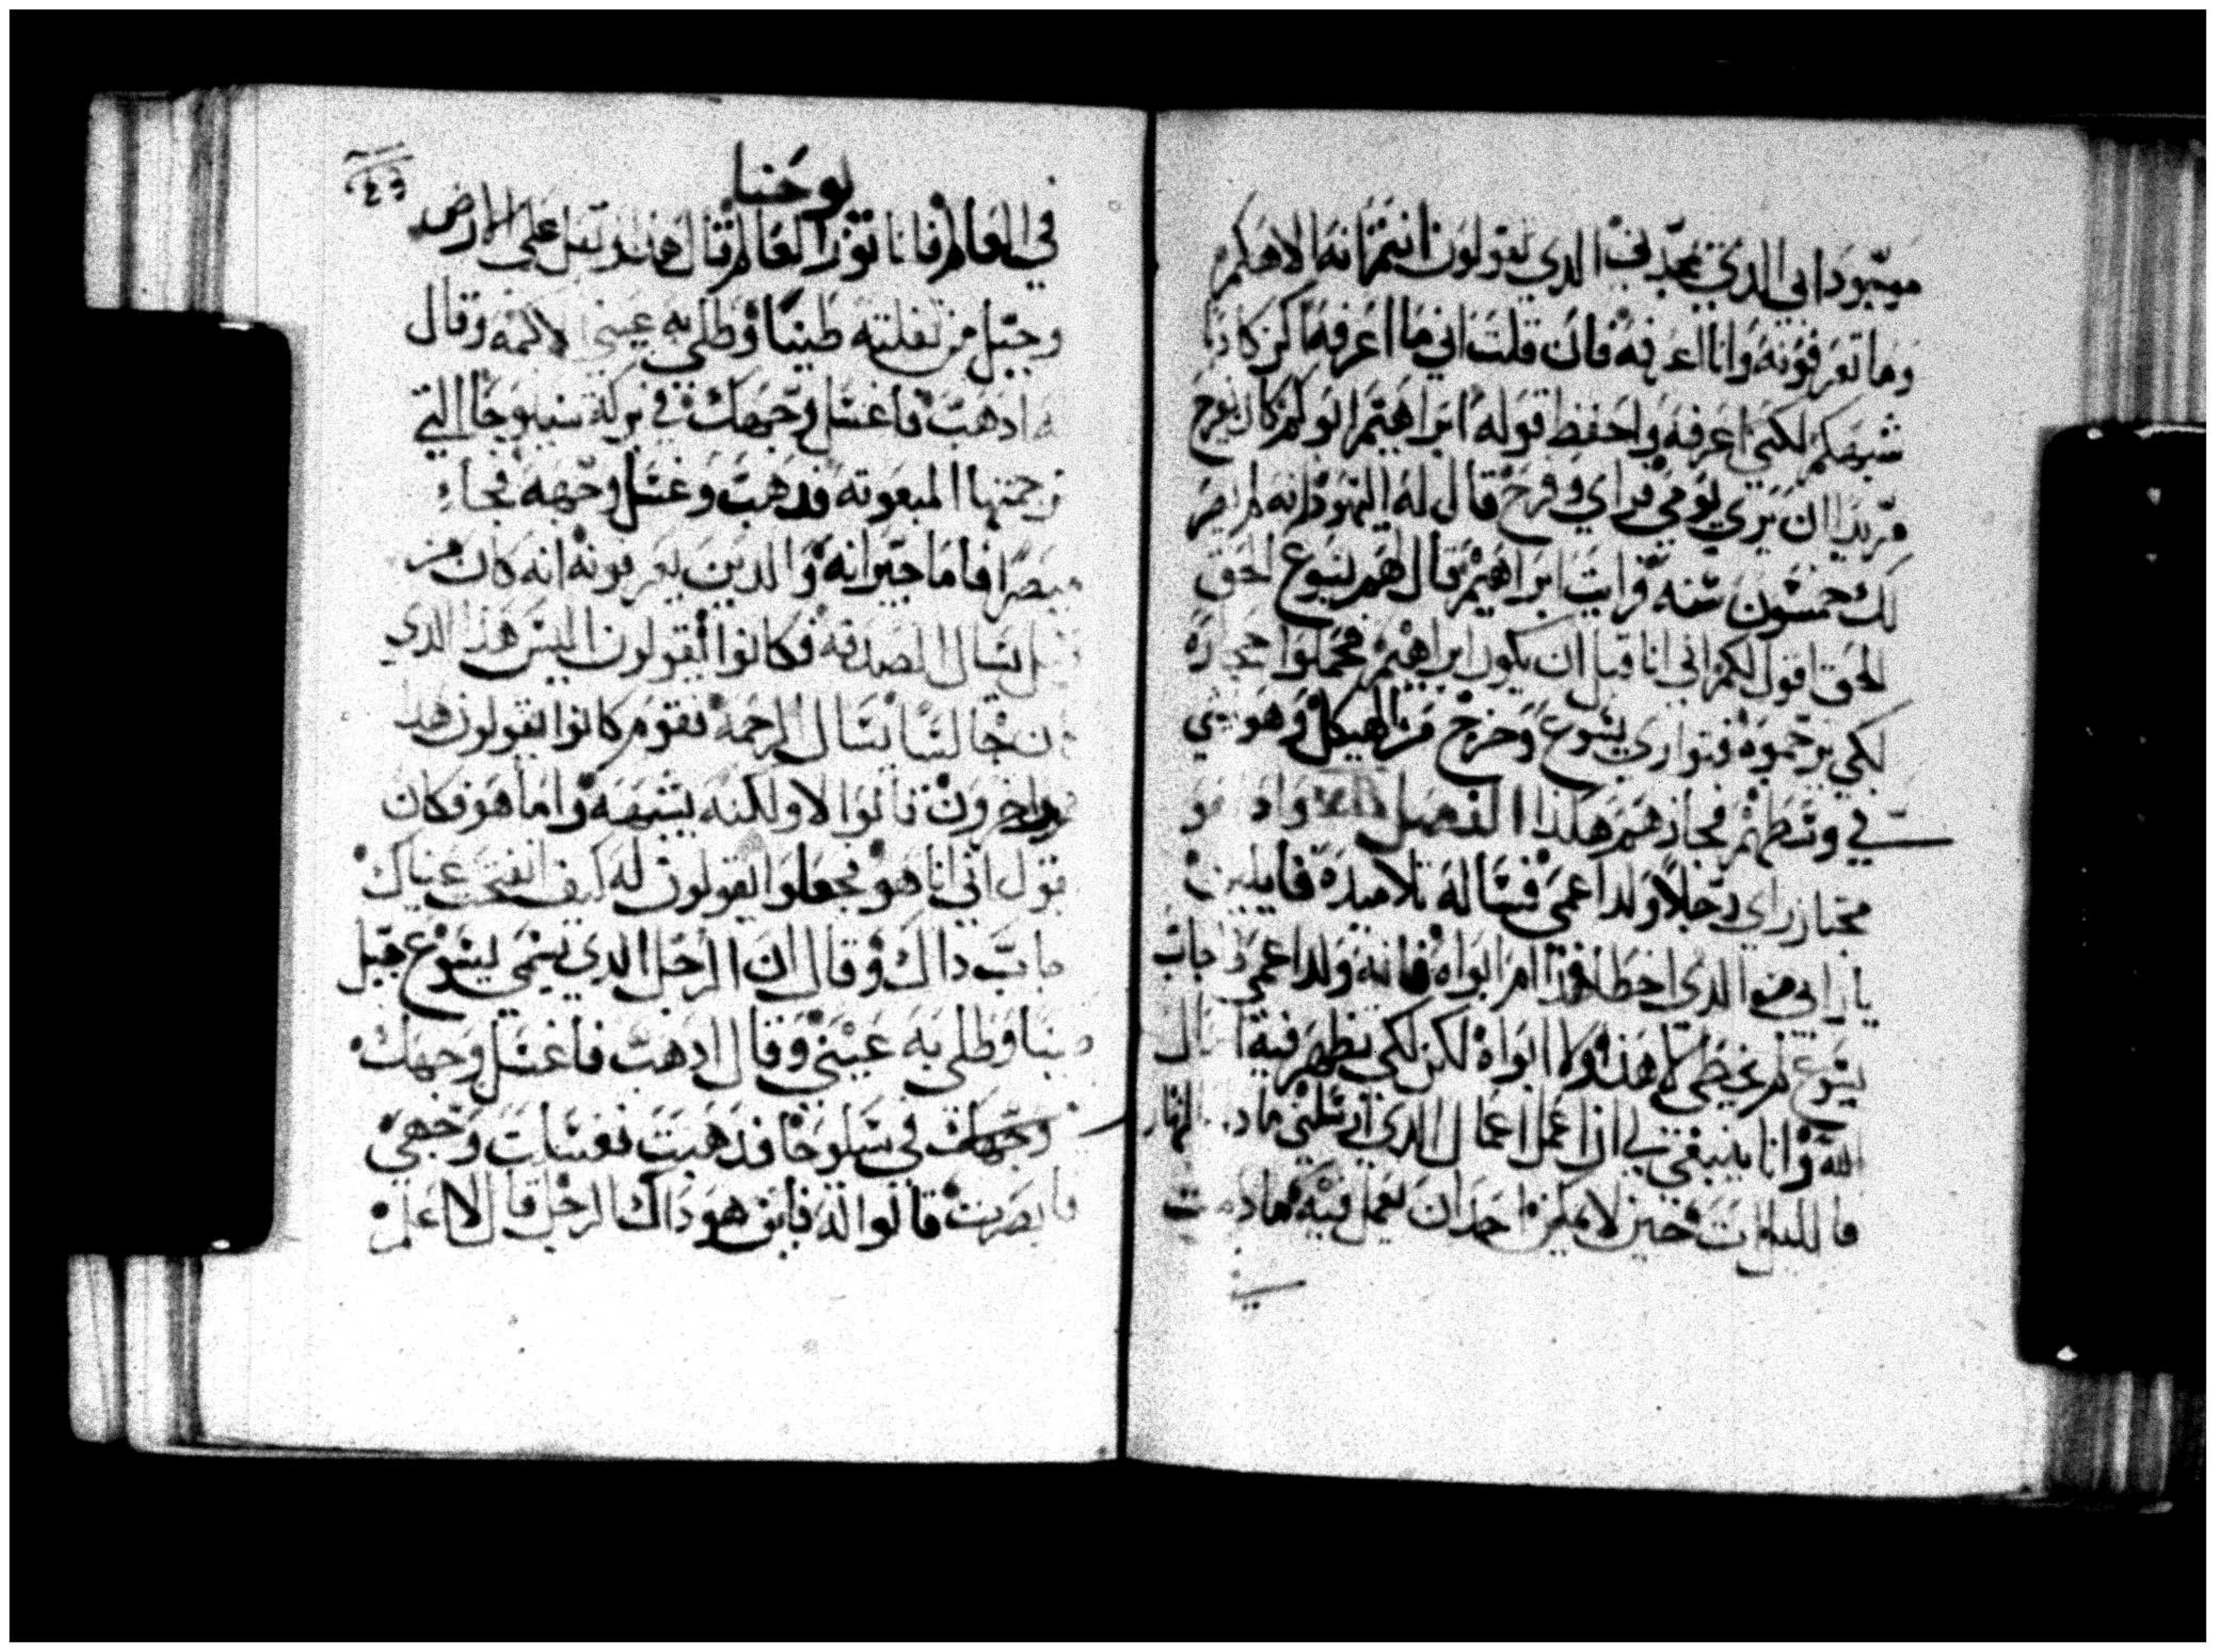 موجود ابي الدي يمجدني الدي تقولون انتم انه الاهكم
وما تعرفونه وانا اعرفه فان قلت اني ما اعرفه اكن كادبا
شبهكم لكني اعرفه واحفظ قوله ابراهيم ابوكم كان
يريد ان يري يومي فراي وفرح قال له اليهود انه لم
لك خمسون سنه فرايت ابراهيم قال لهم يسوع الحق
الحق اقول لكم اني انا قبل ان يكون ابراهيم فحملوا حجاره
لكي يرجموه فتواري يسوع وخرج من الهيكل وهو يمشي
في وسطهم فجازهم هكذا الفصل واد هو
مجتاز راي رجلا ولد اعمي فساله تلاميده قايلين
يا رابي من الدي اخطا هدا ام ابواه فانه ولد اعمي اجاب
يسوع لم يخطي لا هدا ولا ابواه لكن لكي يظهر فيه اعمال
الله وانا ينبغي لي ان اعمل اعمال الدي ارسلني ما دام النهار
فالليل ات حين لا يمكن احد ان يعمل فيه ما دمت
في
يوحنا
في العالم فانا نور العالم قال هدا وتفل علي الارض
وجبل من تفلته طينا وطلي به عيني الاكمه وقال
له ادهب فاغسل وجهك في بركة سيلوحا التي
ترجمتها المبعوثه فدهب وغسل وجهه فجاء
مبصرا فاما جيرانه والدين يعرفونه انه كان من
قبل يسال الصدقه فكانوا يقولون اليس هدا الدي
كان جالسا يسال الرحمه فقوم كانوا يقولون هدا
هو واخرون قالوا لا ولكنه يشبهه واما هو فكان
يقول اني انا هو فجعلوا يقولون له كيف انفتحت عيناك
اجاب داك وقال ان الرجل الدي يسمي يسوع جبل
طينا وطلي به عيني وقال ادهب فاغسل وجهك
وجهك في سلوحا فدهبت فغسلت وجهي
فابصرت قالوا له فاين هو داك الرجل قال لا اعلم